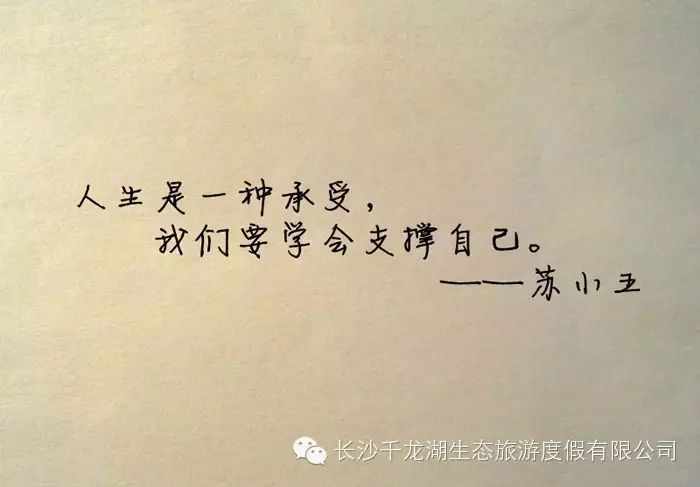 人生是一种承受，
我们要学会支撑自己。
——苏小王
长沙千龙湖生态旅游度假有限公司